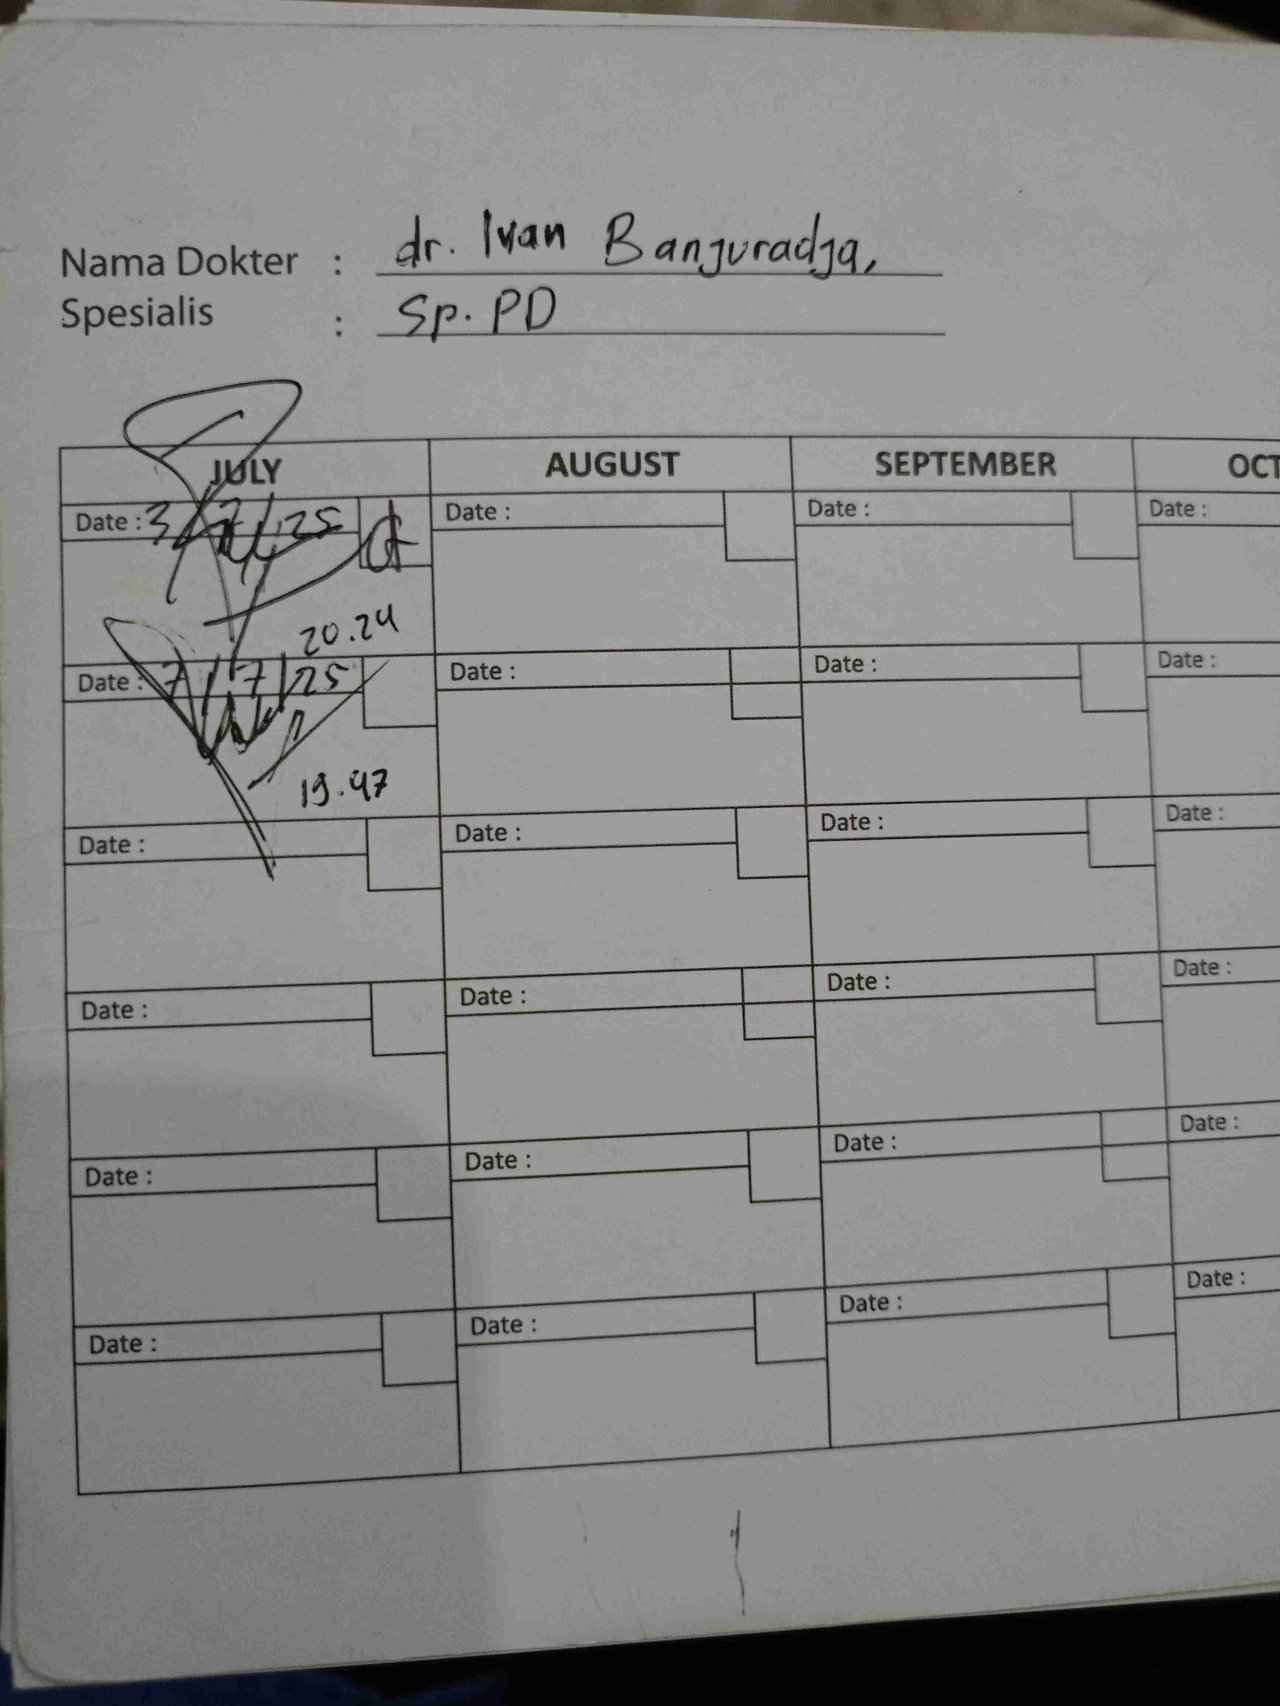 Nama Dokter : dr. Ivan Banjuradja,
Spesialis : Sp. PD
JULY AUGUST SEPTEMBER OCT
Date : 3/7/25 Date : Date : Date :
20.24
Date : 7/7/25 Date : Date : Date :
19.47
Date : Date : Date : Date :
Date : Date : Date : Date :
Date : Date : Date : Date :
Date : Date : Date : Date :